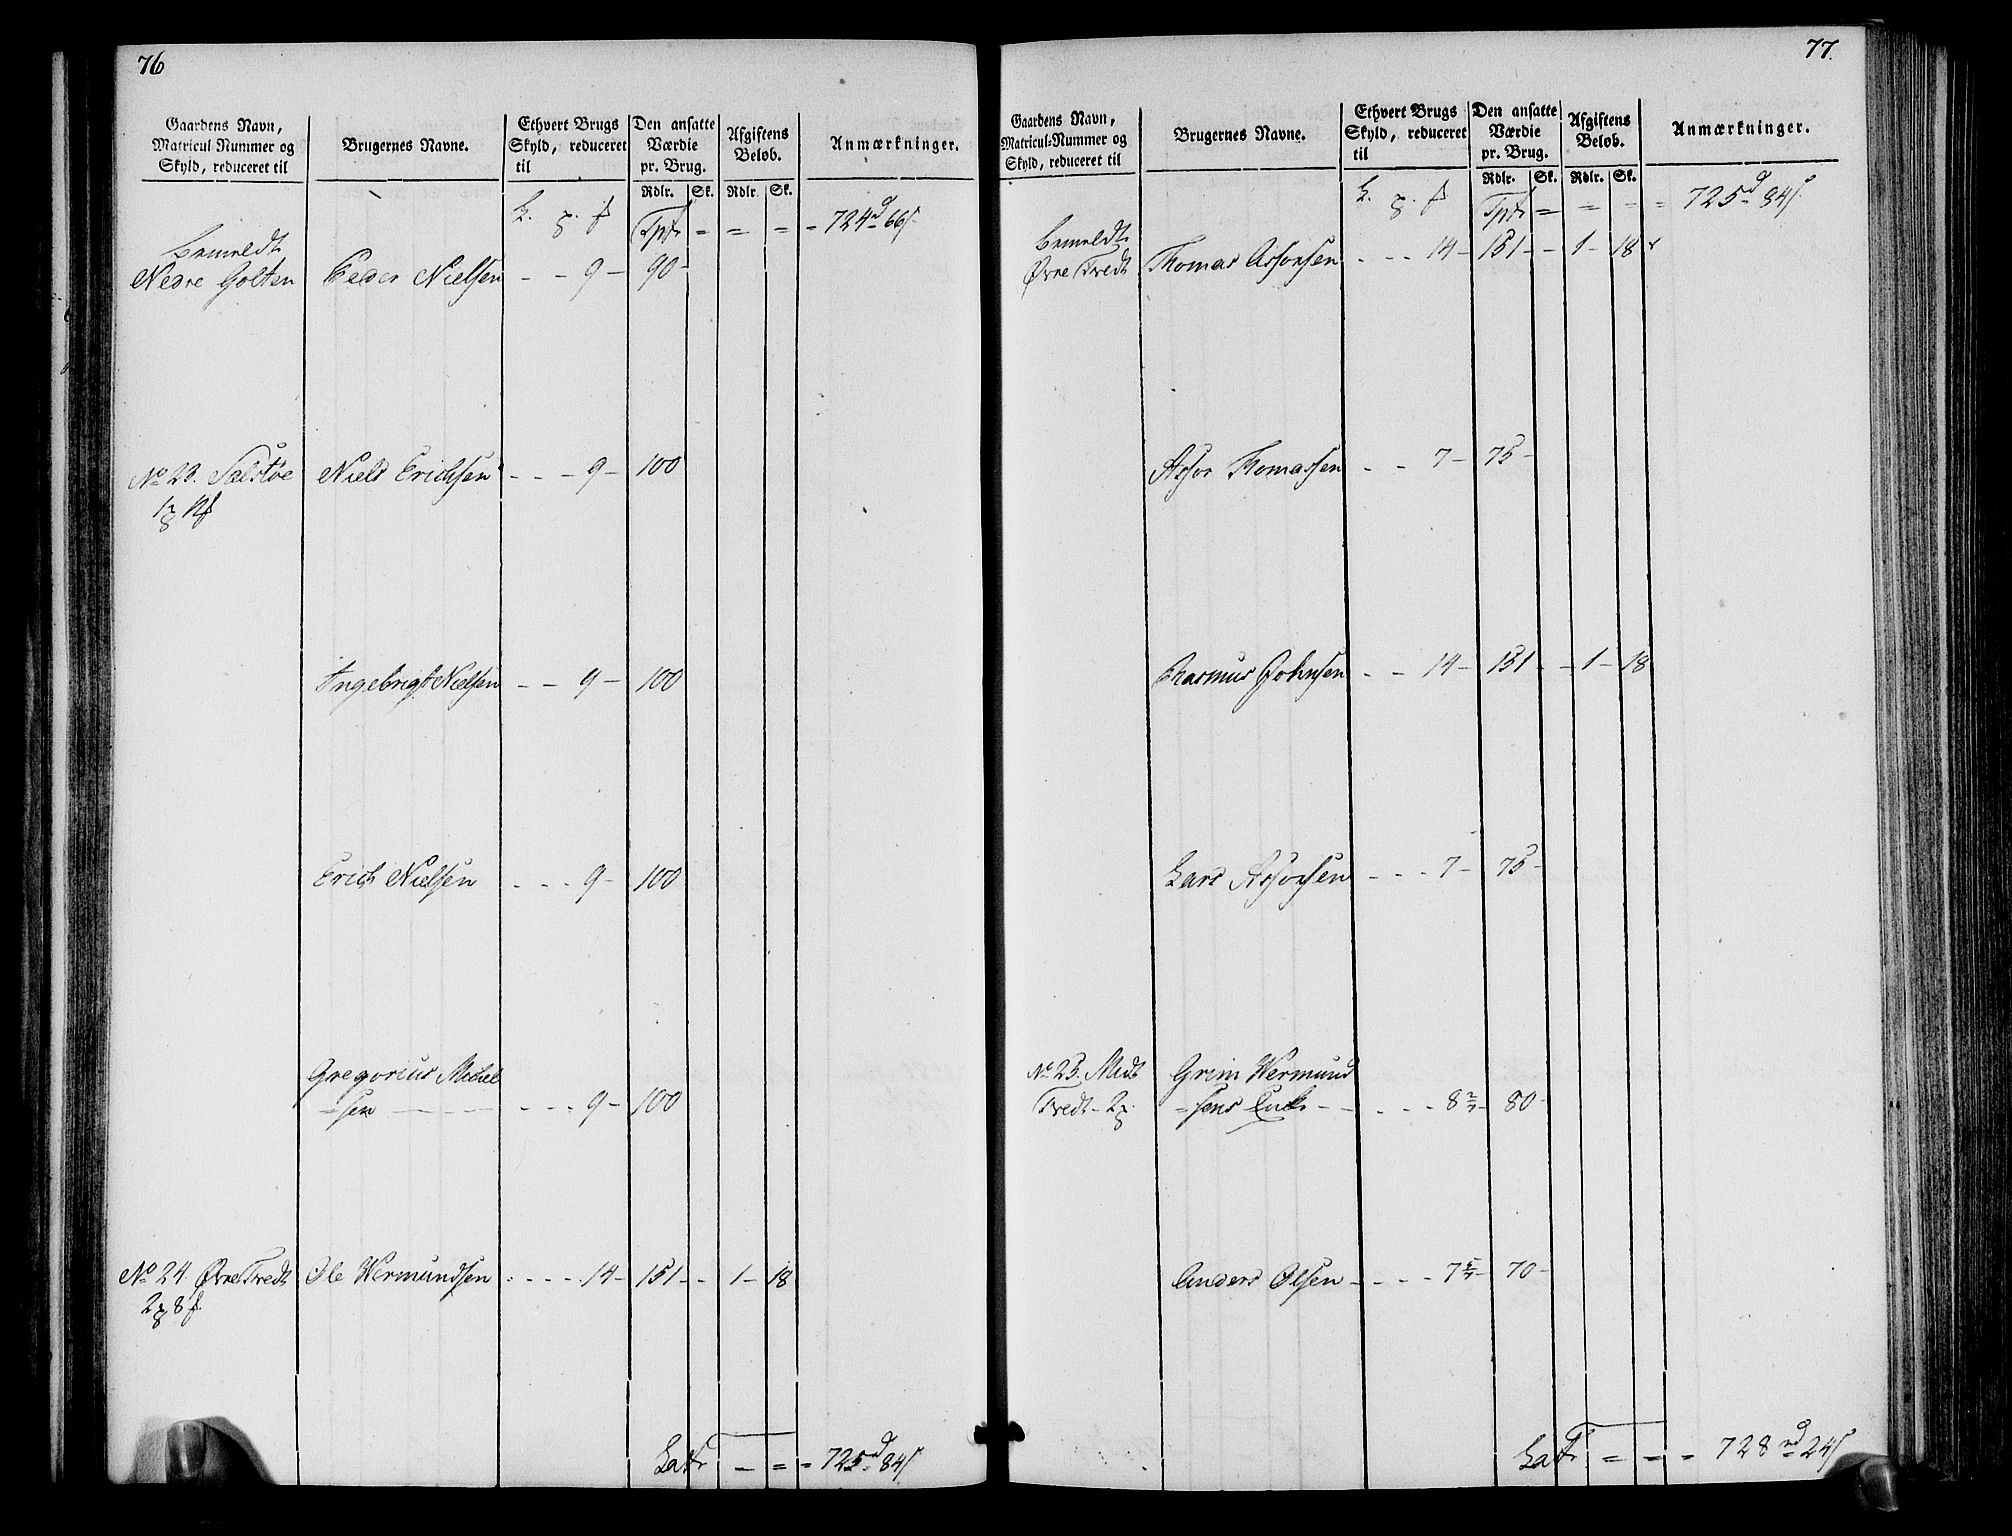 76
Gaardens Navn,
Matricul Nummer og
Skyld, reduceret til
Brugernes Navne.
Ethvert Brugs
Skyld, reduceret
til
Den ansatte
Værdie
pr. Brug.
Rdlr. Sk.
Afgiftens
Beløb.
Rdlr. Sk.
Anmærkninger.
Tpt = = = = 724 d 66 s
bemeldt
Nedre Golten Peder Nielsen - - 9 - 90 -
No 23. Salstøe Niels Erichsen - - - 9 - 100
Ingebrigt Nielsen - - 9 - 100
Erich Nielsen - - - 9 - 100
Gregorius Michel
-sen - - - 9 - 100
No 24. Øvre Tvedt Ole Wermundsen - - - - 14 - 151 - - 1 - 18
Lat - = = 725 d 84 s
77.
Gaardens Navn,
Matricul-Nummer og
Skyld, reduceret til
Brugernes Navne.
Ethvert Brugs
Skyld, reduceret
til
Den ansatte
Værdie
pr. Brug.
Rdlr. Sk.
Afgiftens
Beløb.
Rdlr. Sk.
Anmærkninger.
Tpt = = - = 725 d 84 s
bemeldt
Øvre Tvedt Thomas Assorsen - - - 14 - 151 - - 1 - 18
Assor Thomassen - - 7 - 75 -
Rasmus Johnsen - - 14 - 151 - - 1 - 18
Lars Assorsen - - - 7 - 75 -
No 25. Midt Grim Wermund
Tvedt - 2 -sens Enke - - - - 8 2/7 - 80 -
Anders Olsen - - - - 7 5/7 - 70 -
Lat = - = 728 rd 24 s